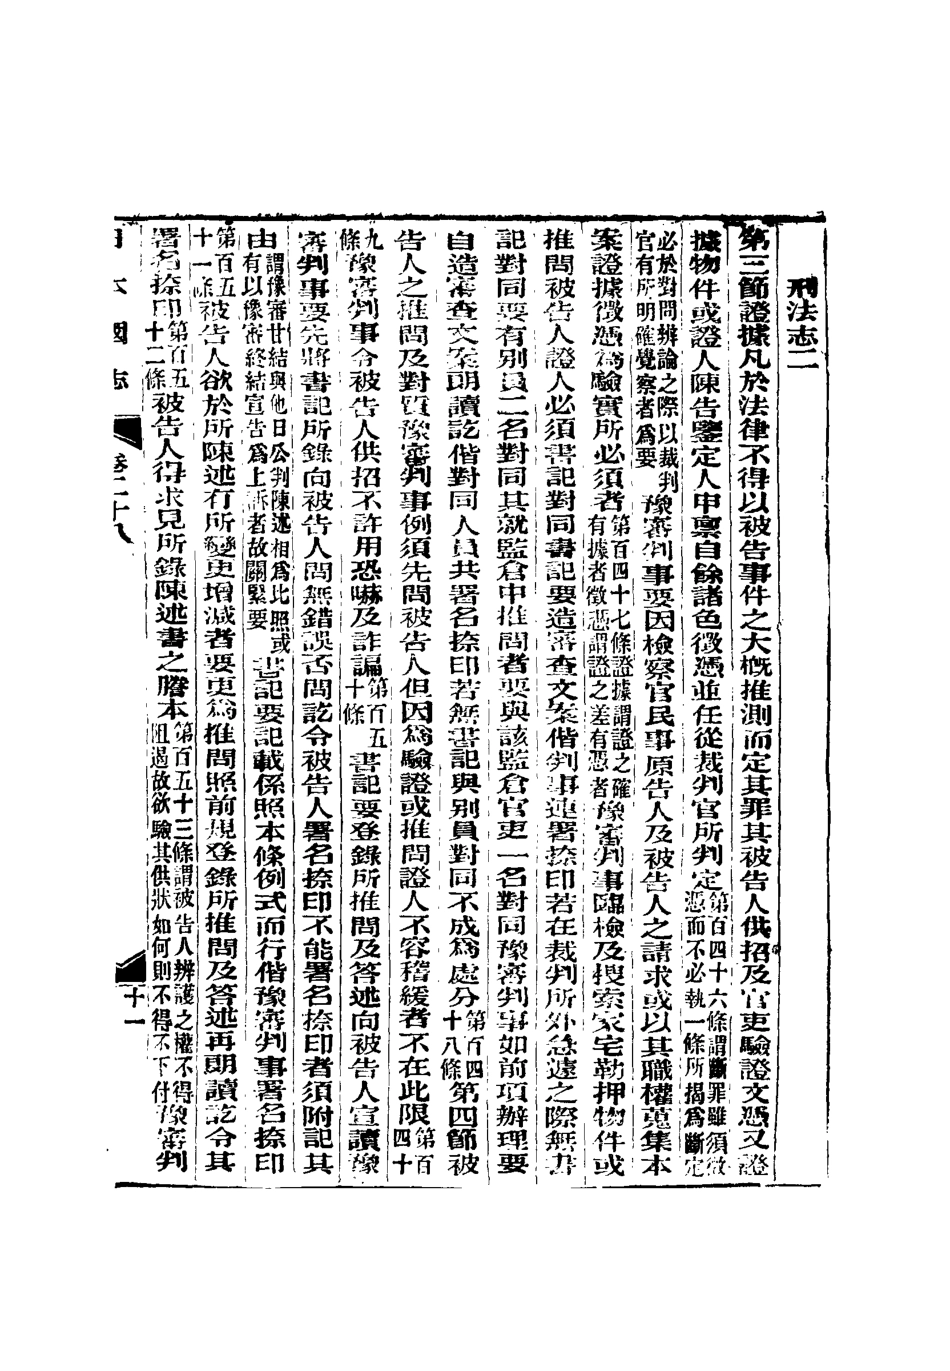 刑法志二
第三節證據凡於法律不得以被告事件之大槪推測而定其罪其被告人供招及官吏驗證文憑又證
據物件或證人陳告鑒定人申稟自餘諸色徵憑並任從裁判官所判定第百四十六條謂斷罪雖須徵憑而不必執一條所揭爲斷定
必於對問辨論之際以裁判官有所明確覺察者爲要豫審判事要因檢察官民事原告人及被告人之請求或以其職權蒐集本
案證據徵憑爲驗實所必須者第百四十七條證據謂證之確有據者徵憑謂證之差有憑者豫審判事臨檢及搜索家宅勒押物件或
推問被告人證人必須書記對同書記要造審查文案偕判事連署捺印若在裁判所外急遽之際無書
記對同要有別員二名對同其就監倉中推問者要與該監倉官吏一名對同豫審判事如前項辦理要
自造審查文案朗讀訖偕對同人員共署名捺印若無書記與別員對同不成爲處分第百四十八條第四節被
告人之推問及對質豫審判事例須先問被告人但因爲驗證或推問證人不容稽緩者不在此限第百四十
九條豫審判事令被告人供招不許用恐嚇及詐騙第百五十條書記要登錄所推問及答述向被告人宣讀豫
審判事要先將書記所錄向被告人問無錯誤否問訖令被告人署名捺印不能署名捺印者須附記其
由謂豫審甘結與他日公判陳述相爲比照或有以豫審終結宣告爲上訴者故關緊要書記要記載係照本條例式而行偕豫審判事署名捺印
第百五十一條被告人欲於所陳述有所變更增減者要更爲推問照前規登錄所推問及答述再朗讀訖令其
署名捺印第百五十二條被告人得求見所錄陳述書之謄本第百五十三條謂被告人辨護之權不得阻遏故欲驗其供狀如何則不得不下付豫審判
日本國志
卷二十八
十一